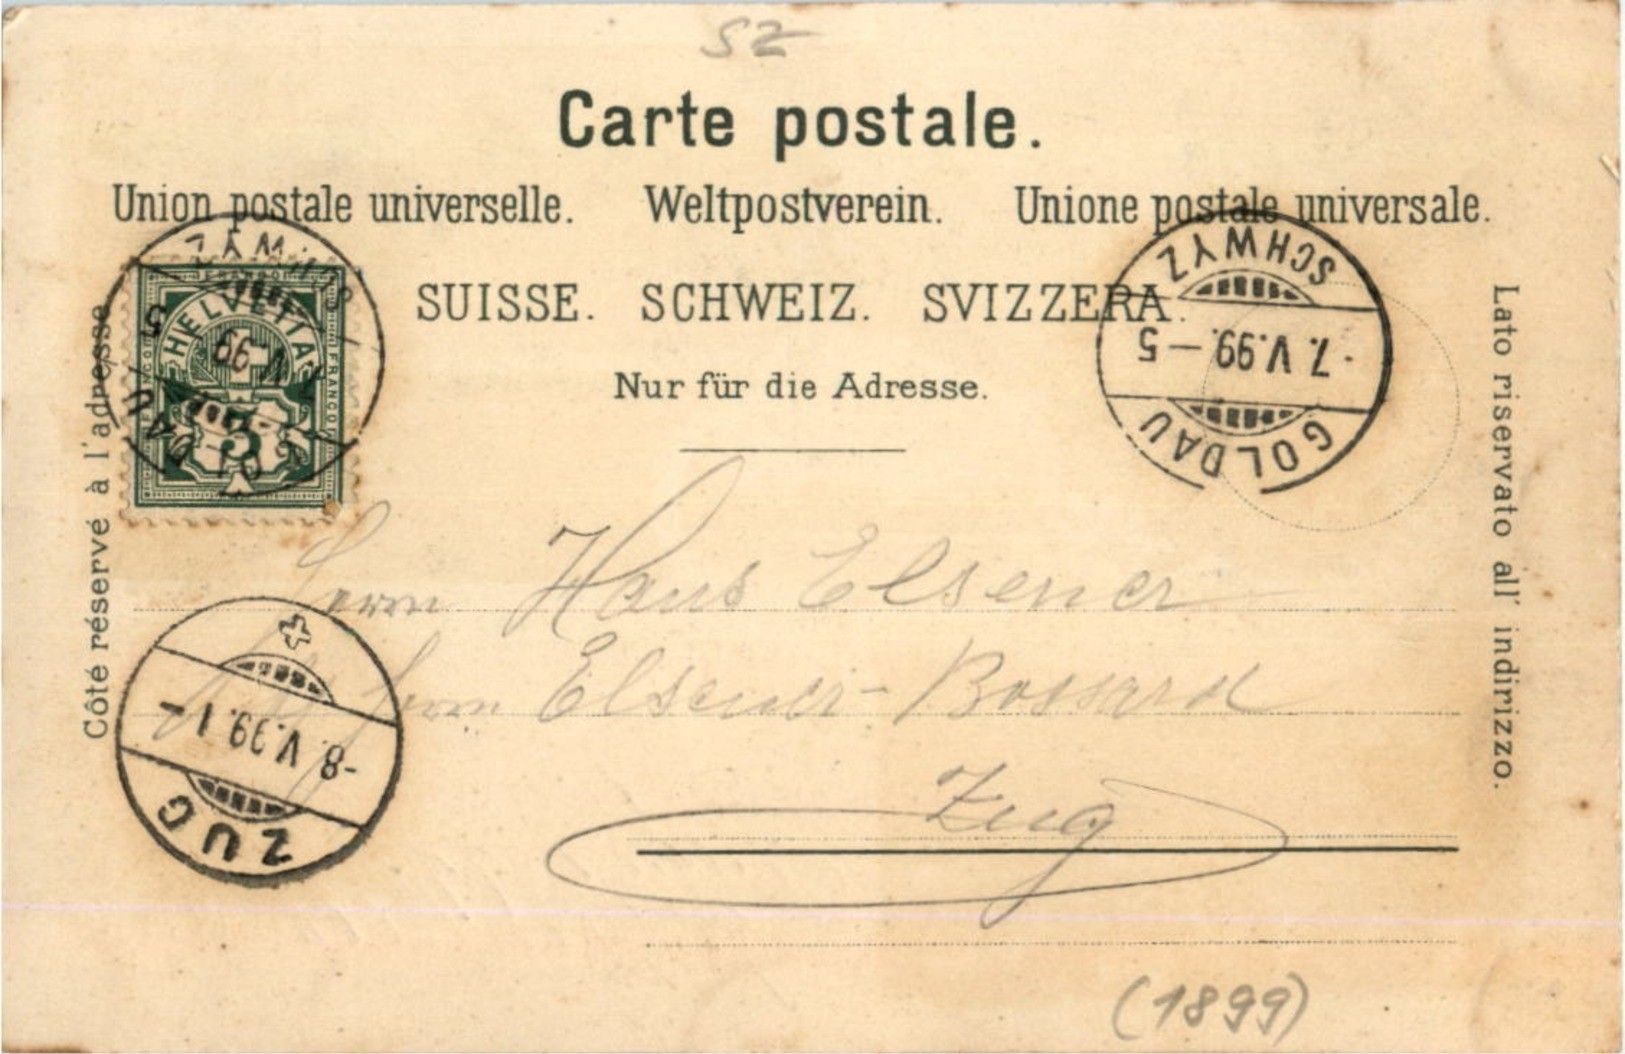 SZ
Carte postale.
Union postale universelle. Weltpostverein. Unione postale universale.
SUISSE. SCHWEIZ. SVIZZERA.
Nur für die Adresse.
Côté réservé à l'adresse
Lato riservato all' indirizzo.
FRANCO
HELVETIA
FRANCO
5
SCHWYZ
V.99
5
GOLDAU
SCHWYZ
7.V.99.–5
GOLDAU
Herrn Hans Elsener
Herrn Elsener-Bossard
Zug
-8.V.99.I-
ZUG
(1899)